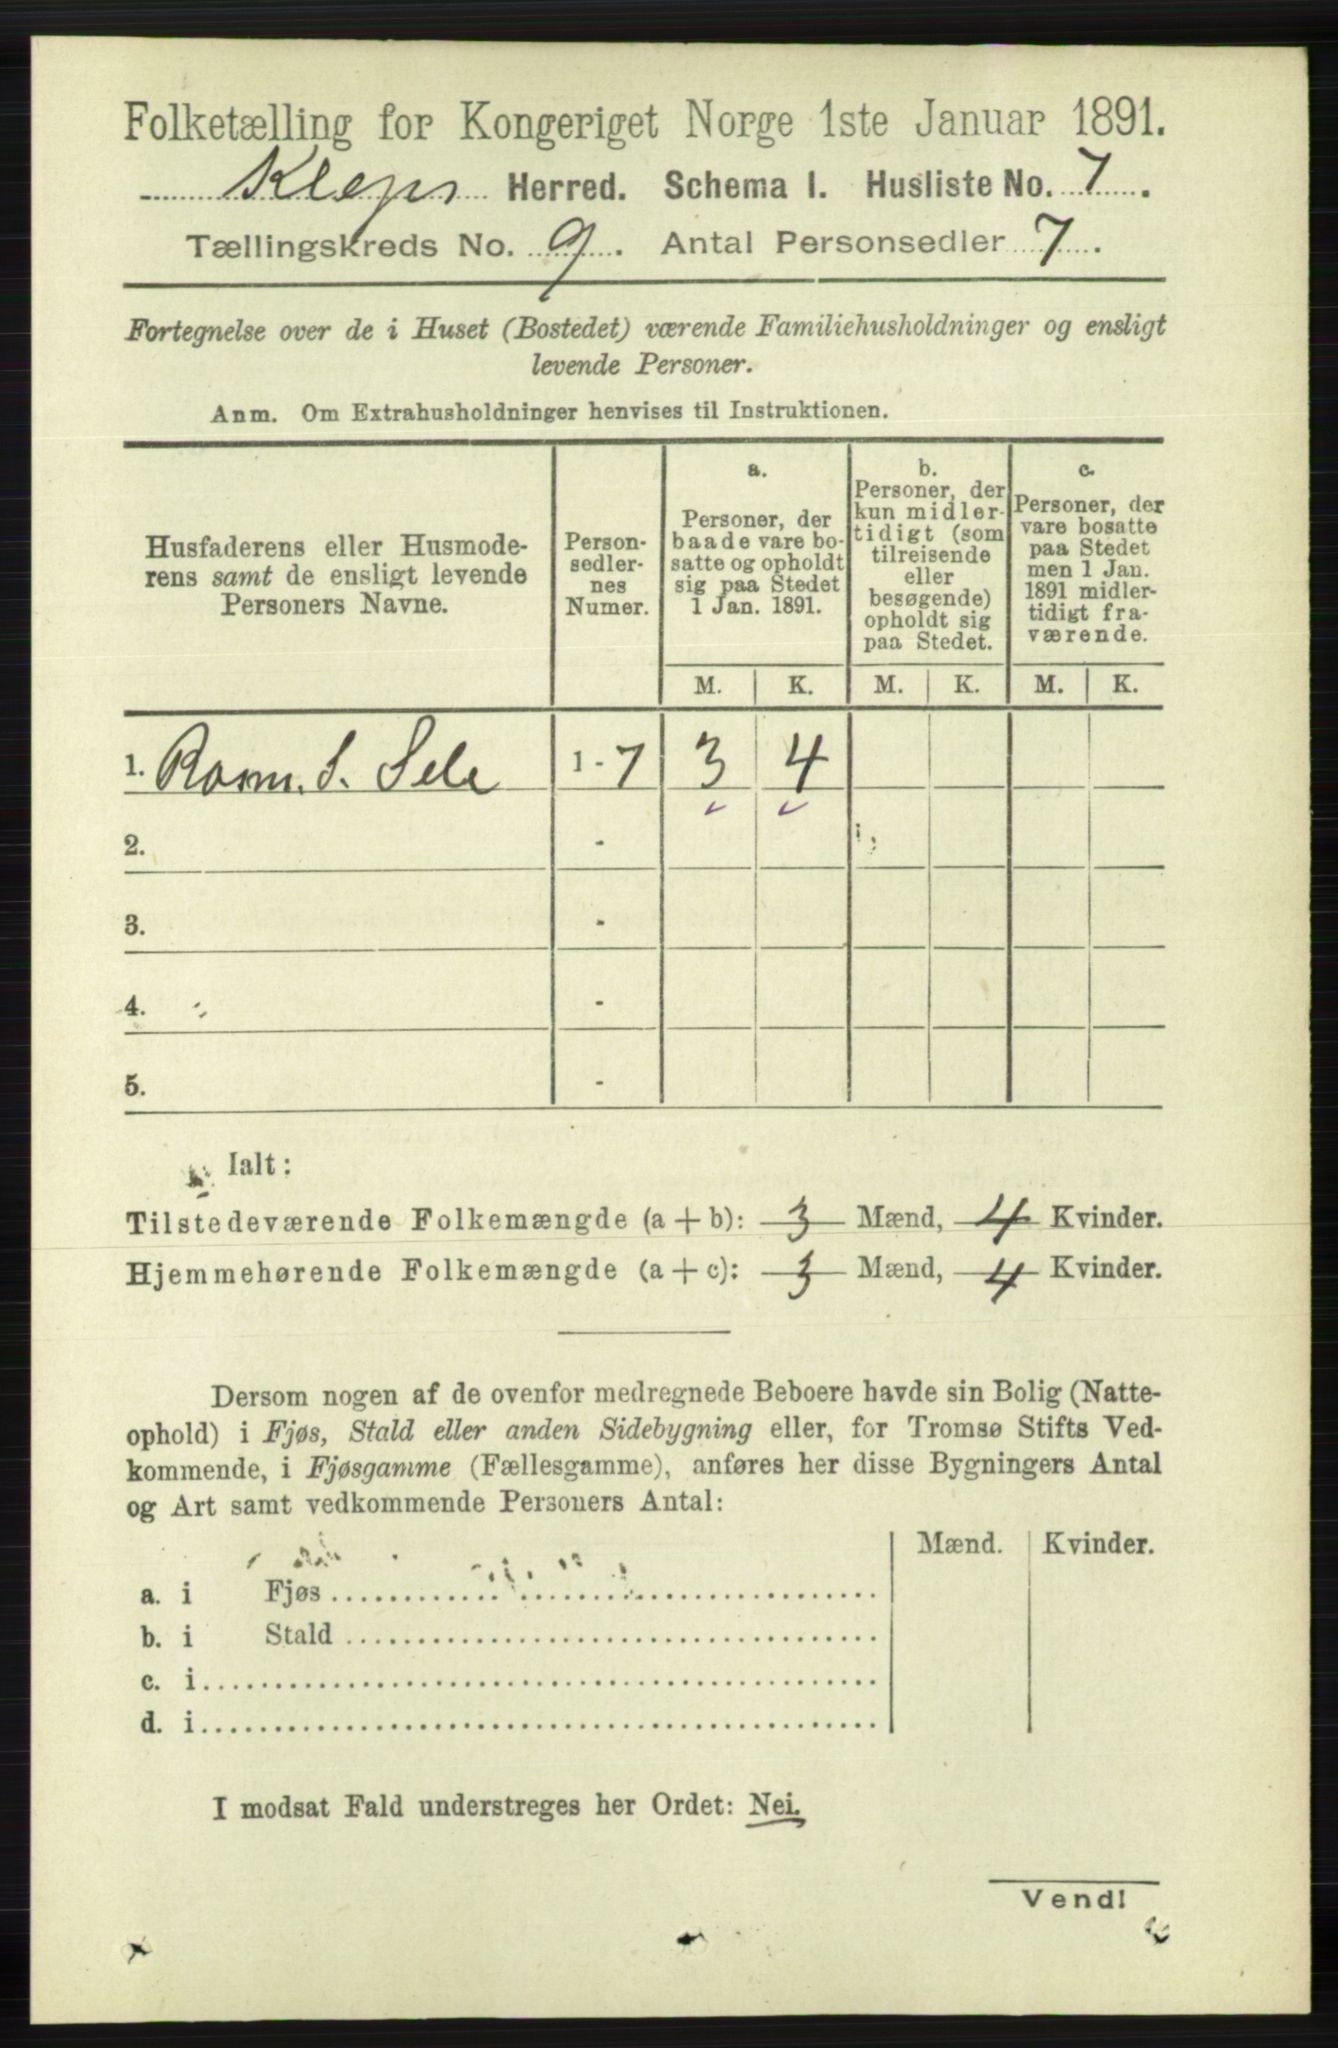 Folketælling for Kongeriget Norge 1ste Januar 1891.
Klepp Herred. Schema I. Husliste No. 7.
Tællingskreds No. 9. Antal Personsedler 7.
Fortegnelse over de i Huset (Bostedet) værende Familiehusholdninger og ensligt
levende Personer.
Anm. Om Extrahusholdninger henvises til Instruktionen.
Husfaderens eller Husmode-
rens samt de ensligt levende
Personers Navne.
Person-
sedler-
nes
Numer.
a.
Personer, der
baade vare bo-
satte og opholdt
sig paa Stedet
1 Jan. 1891.
b.
Personer, der
kun midler-
tidigt (som
tilreisende
eller
besøgende)
opholdt sig
paa Stedet.
c.
Personer, der
vare bosatte
paa Stedet
men 1 Jan.
1891 midler-
tidigt fra-
værende.
M. K. M. K. M. K.
1. Rasm. S. Sele 1 - 7 3 4
2. -
3. -
4. -
5. -
Ialt:
Tilstedeværende Folkemængde (a + b): 3 Mænd, 4 Kvinder.
Hjemmehørende Folkemængde (a + c): 3 Mænd, 4 Kvinder.
Dersom nogen af de ovenfor medregnede Beboere havde sin Bolig (Natte-
ophold) i Fjøs, Stald eller anden Sidebygning eller, for Tromsø Stifts Ved-
kommende, i Fjøsgamme (Fællesgamme), anføres her disse Bygningers Antal
og Art samt vedkommende Personers Antal:
Mænd. Kvinder.
a. i Fjøs
b. i Stald
c. i
d. i
I modsat Fald understreges her Ordet: Nei.
Vend!